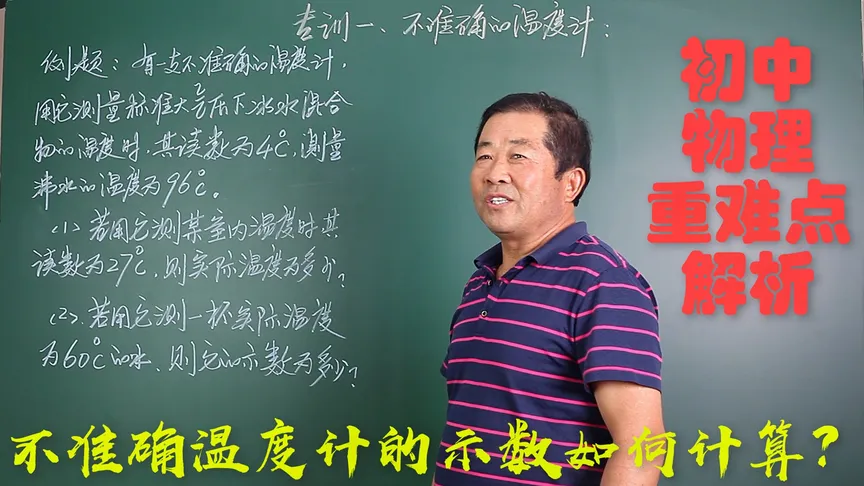 专训一、不准确的温度计：
例题：有一支不准确的温度计，
用它测量标准大气压下冰水混合
物的温度时，其读数为4℃，测量
沸水的温度为96℃。
(1)若用它测某室内温度时其
读数为27℃，则实际温度为多少？
(2)、若用它测一杯实际温度
为60℃的水，则它的示数为多少？
初中
物理
重难点
解析
不准确温度计的示数如何计算？